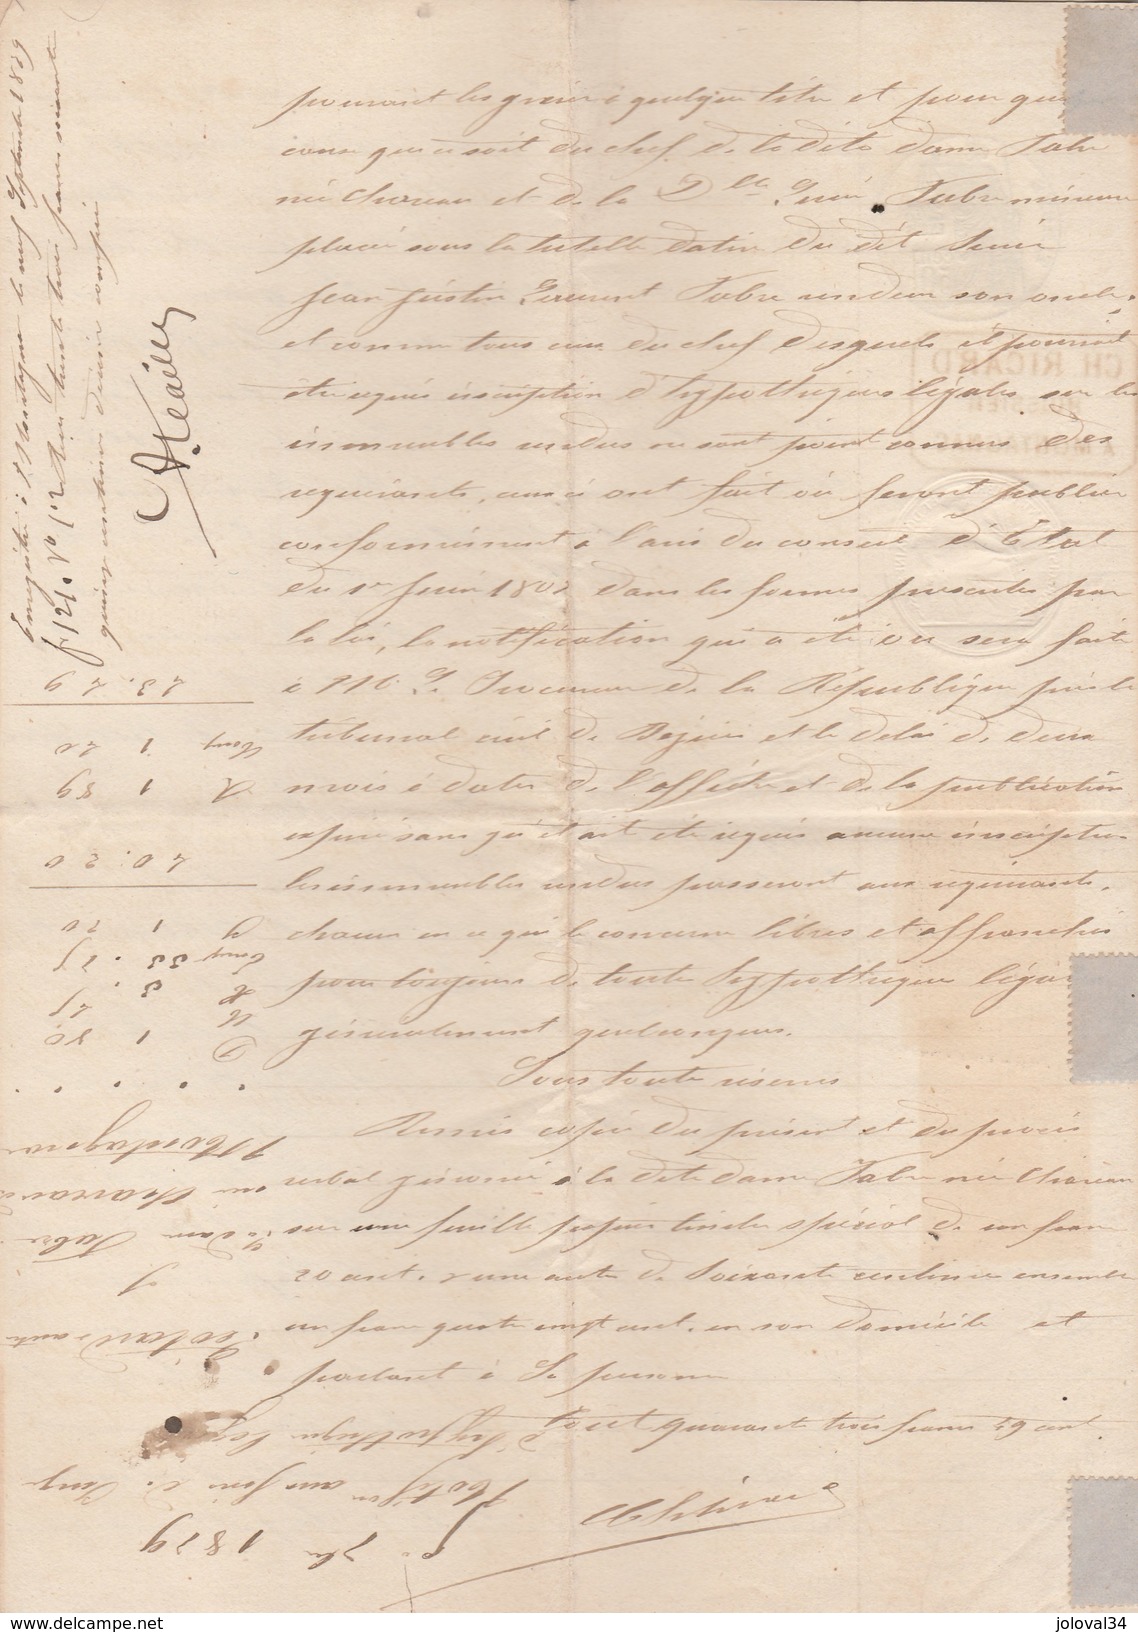 pouvant les grever à quelque titre et pour que
cause que ce soit du chef de la dite dame Fabre
née Chareau et de la Dlle Fabre mineure
placée sous la tutelle dative du dit sieur
Jean Justin Laurent Fabre vendeur son oncle,
et comme tous ceux du chef desquels il pourrait
être requis inscription d'hypothèques légales sur les
immeubles vendus ne sont point connus des
requérants, ceux-ci ont fait où feront publier
conformément à l'avis du conseil d'Etat
du 1er Juin 1807 dans les formes prescrites par
la loi, la notification qui a été ou sera faite
à Mr le Procureur de la République près le
tribunal civil de Béziers et le délai de deux
mois à dater de l'affiche et de la publication
expiré sans qu'il ait été requis aucune inscription
les immeubles vendus passeront aux requérants,
chacun en ce qui le concerne libres et affranchis
pour toujours de toute hypothèque léga
généralement quelconques.
Sous toute réserves
Remis copie du présent et du procès
verbal à la dite dame Fabre née Chareau
sur une feuille papier timbre spécial de un franc
20 cent. & une autre de soixante centimes ensemble
un franc quatre vingt cent. en son domicile et
parlant à sa personne
Coût quarante trois francs 49 cent.
Enregistré à Montagnac le neuf Septembre 1879
f° 121. V° C. 2. Reçu trente trois francs soixante
quinze centimes décimes compris
43. 49
Enreg 1 20
R 1 89
40. 20
1 20
Enreg 33. 75
3. 45
D 1 80
Montagnac
née Chareau
à Dame Fabre
d'hypothèque lég
Notification aux fins de Purge
7bre 1879
CH RICARD
joloval34